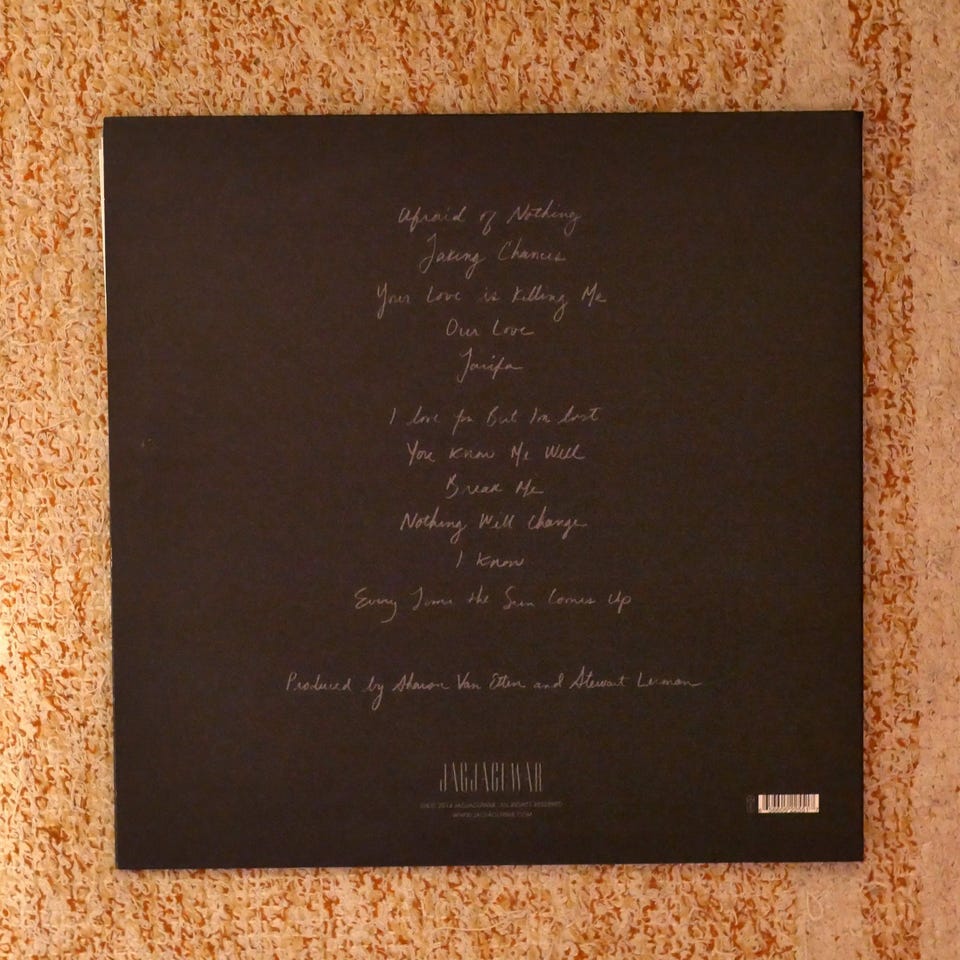 Afraid of Nothing
Taking Chances
Your Love is Killing Me
Our Love
Tarifa
I love you But I'm lost
You Know Me Well
Break Me
Nothing Will Change
I Know
Every Time the Sun Comes Up
Produced by Sharon Van Etten and Stewart Lerman
JAGJAGUWAR
2014 JAGJAGUWAR. ALL RIGHTS RESERVED
WWW.JAGJAGUWAR.COM